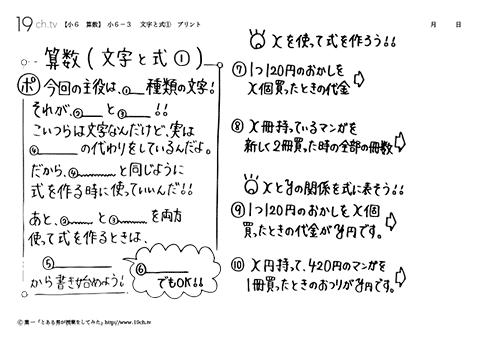 19ch.tv 【小6 算数】 小6－3 文字と式① プリント 月 日
算数(文字と式①)
ポ 今回の主役は、①＿種類の文字！
それが、②＿と③＿！！
こいつらは文字なんだけど、実は
④＿の代わりをしているんだよ。
だから、④＿と同じように
式を作る時に使っていいんだ！！
あと、②＿と③＿を両方
使って式を作るときは、
⑤＿
から書き始めよう！
⑥＿
でもOK！！
xを使って式を作ろう！！
⑦ 1つ120円のおかしを
x個買ったときの代金
⑧ x冊持っているマンガを
新しく2冊買った時の全部の冊数
xとyの関係を式に表そう！！
⑨ 1つ120円のおかしをx個
買ったときの代金がy円です。
⑩ x円持って、420円のマンガを
1冊買ったときのおつりがy円です。
© 葉一「とある男が授業をしてみた」http://www.19ch.tv